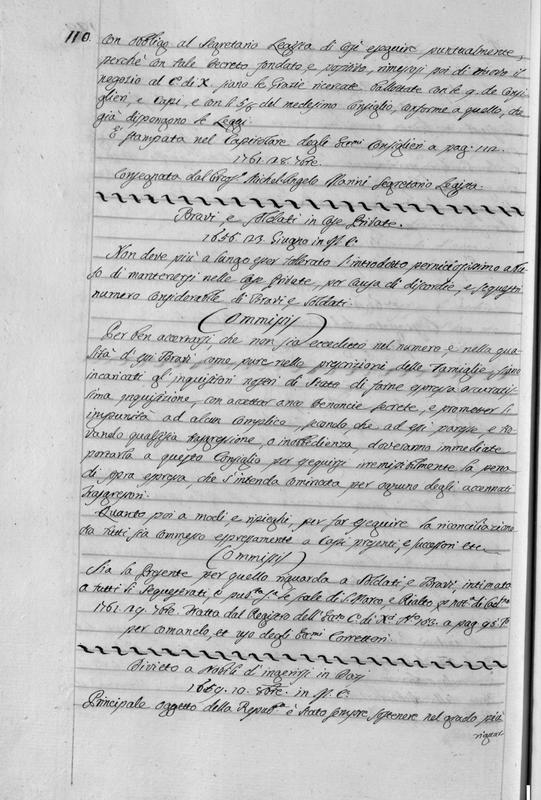 110.
con obbligo al Segretario Legizza di così eseguire puntualmente,
perchè con tale Decreto fondato, e positivo, rimessosi poi di nuovo il
negozio al C. di X., siano le Grazie ricercate ballottate con le 9. de Consi-
glieri, e Capi, e con li 5/6 del medesimo Consiglio, conforme a quello, che
già dispongono le Leggi.
È stampata nel Capitolare degli Ecc.mi Consiglieri a pag. 112.
1761. 28. 7bre.
Consegnata dal Michel Angelo Marini Segretario
Bravi, e Soldati in Case Private.
1656. 23. Giugno in M. C.
Non deve più a lungo esser tollerato l'introdotto perniciosissimo abu-
so di mantenersi nelle Case Private, per causa di discordie, e sequestri
numero considerabile di Bravi e Soldati.
(Ommissis)
Per ben accertarsi che non sia ecceduto nel numero, e nella qua-
lità di essi Bravi, come pure nelle prescrizioni delle Famiglie, siano
incaricati gl'inquisitori nostri di Stato di farne espressa accuratis-
sima inquisizione, con accettar anco denoncie secrete, e prometter l'
impunità ad alcun complice, secondo che ad essi paresse, e tro-
vando qualsisia trasgressione, o inobbedienza, doveranno immediate
portarla a questo Consiglio per eseguirsi irremissibilmente la pena
di sopra espressa, che s'intenda cominata per ognuno degli accennati
trasgressori.
Quanto poi a modi, e ripieghi, per far eseguire la riconciliazione
da tutti sia commesso espressamente a Capi presenti, e successori etc.
(Ommissis)
Sia la Presente per quello riguarda a Soldati, e Bravi, intimata
a tutti li Sequestrati, e pub.ta s.a le scale di S. Marco, e Rialto, per not.a di cad.no
1761. 29. 7bre. Tratta dal Registro dell'Ecc.o C. di X. N.o 183. a pag. 95 t.o
per comando, et uso degli Ecc.mi Correttori.
Divieto a Nobili d'ingerirsi in
1659. 10. 8bre. in M. C.
Principale oggetto della Repub.a è stato sempre sostenere nel grado più
rigoros-